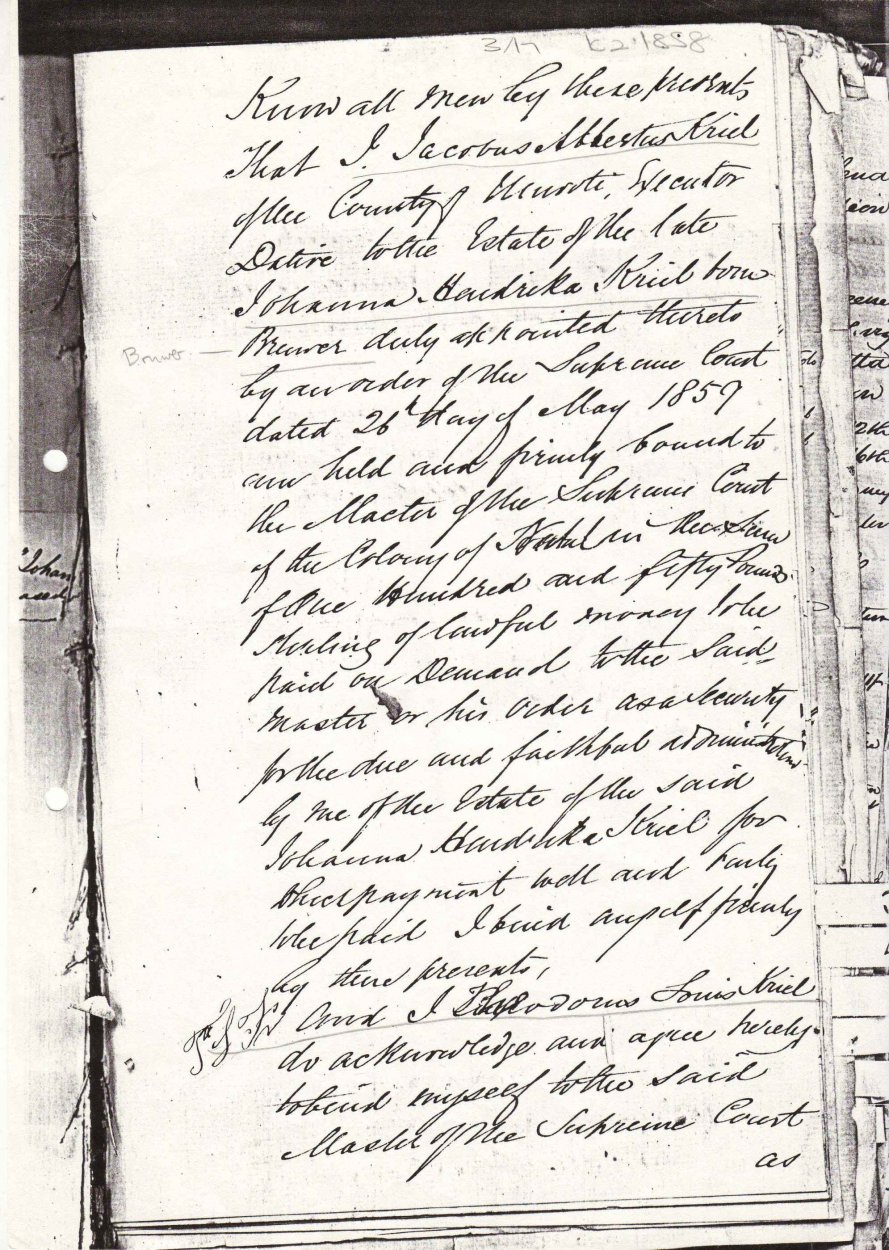 3/17 K2.1858
Know all men by these presents
That I. Jacobus Albertus Kriel
of the County of Umvoti, Executor
Dative to the Estate of the late
Johanna Hendrika Kriel born
Brewer duly appointed thereto
Brouwer —
by an order of the Supreme Court
dated 26h day of May 1857
am held and firmly bound to
the Master of the Supreme Court
of the Colony of Natal in the Sum
of One Hundred and fifty Pounds
Sterling of lawful money to be
paid on Demand to the Said
Master or his order as a Security
for the due and faithful administration
by me of the Estate of the said
Johanna Hendrika Kriel for
which payment well and truly
to be paid I bind myself firmly
by these presents,
And I Theodorus Louis Kriel
do acknowledge and agree hereby
to bind myself to the said
Master of the Supreme Court
as